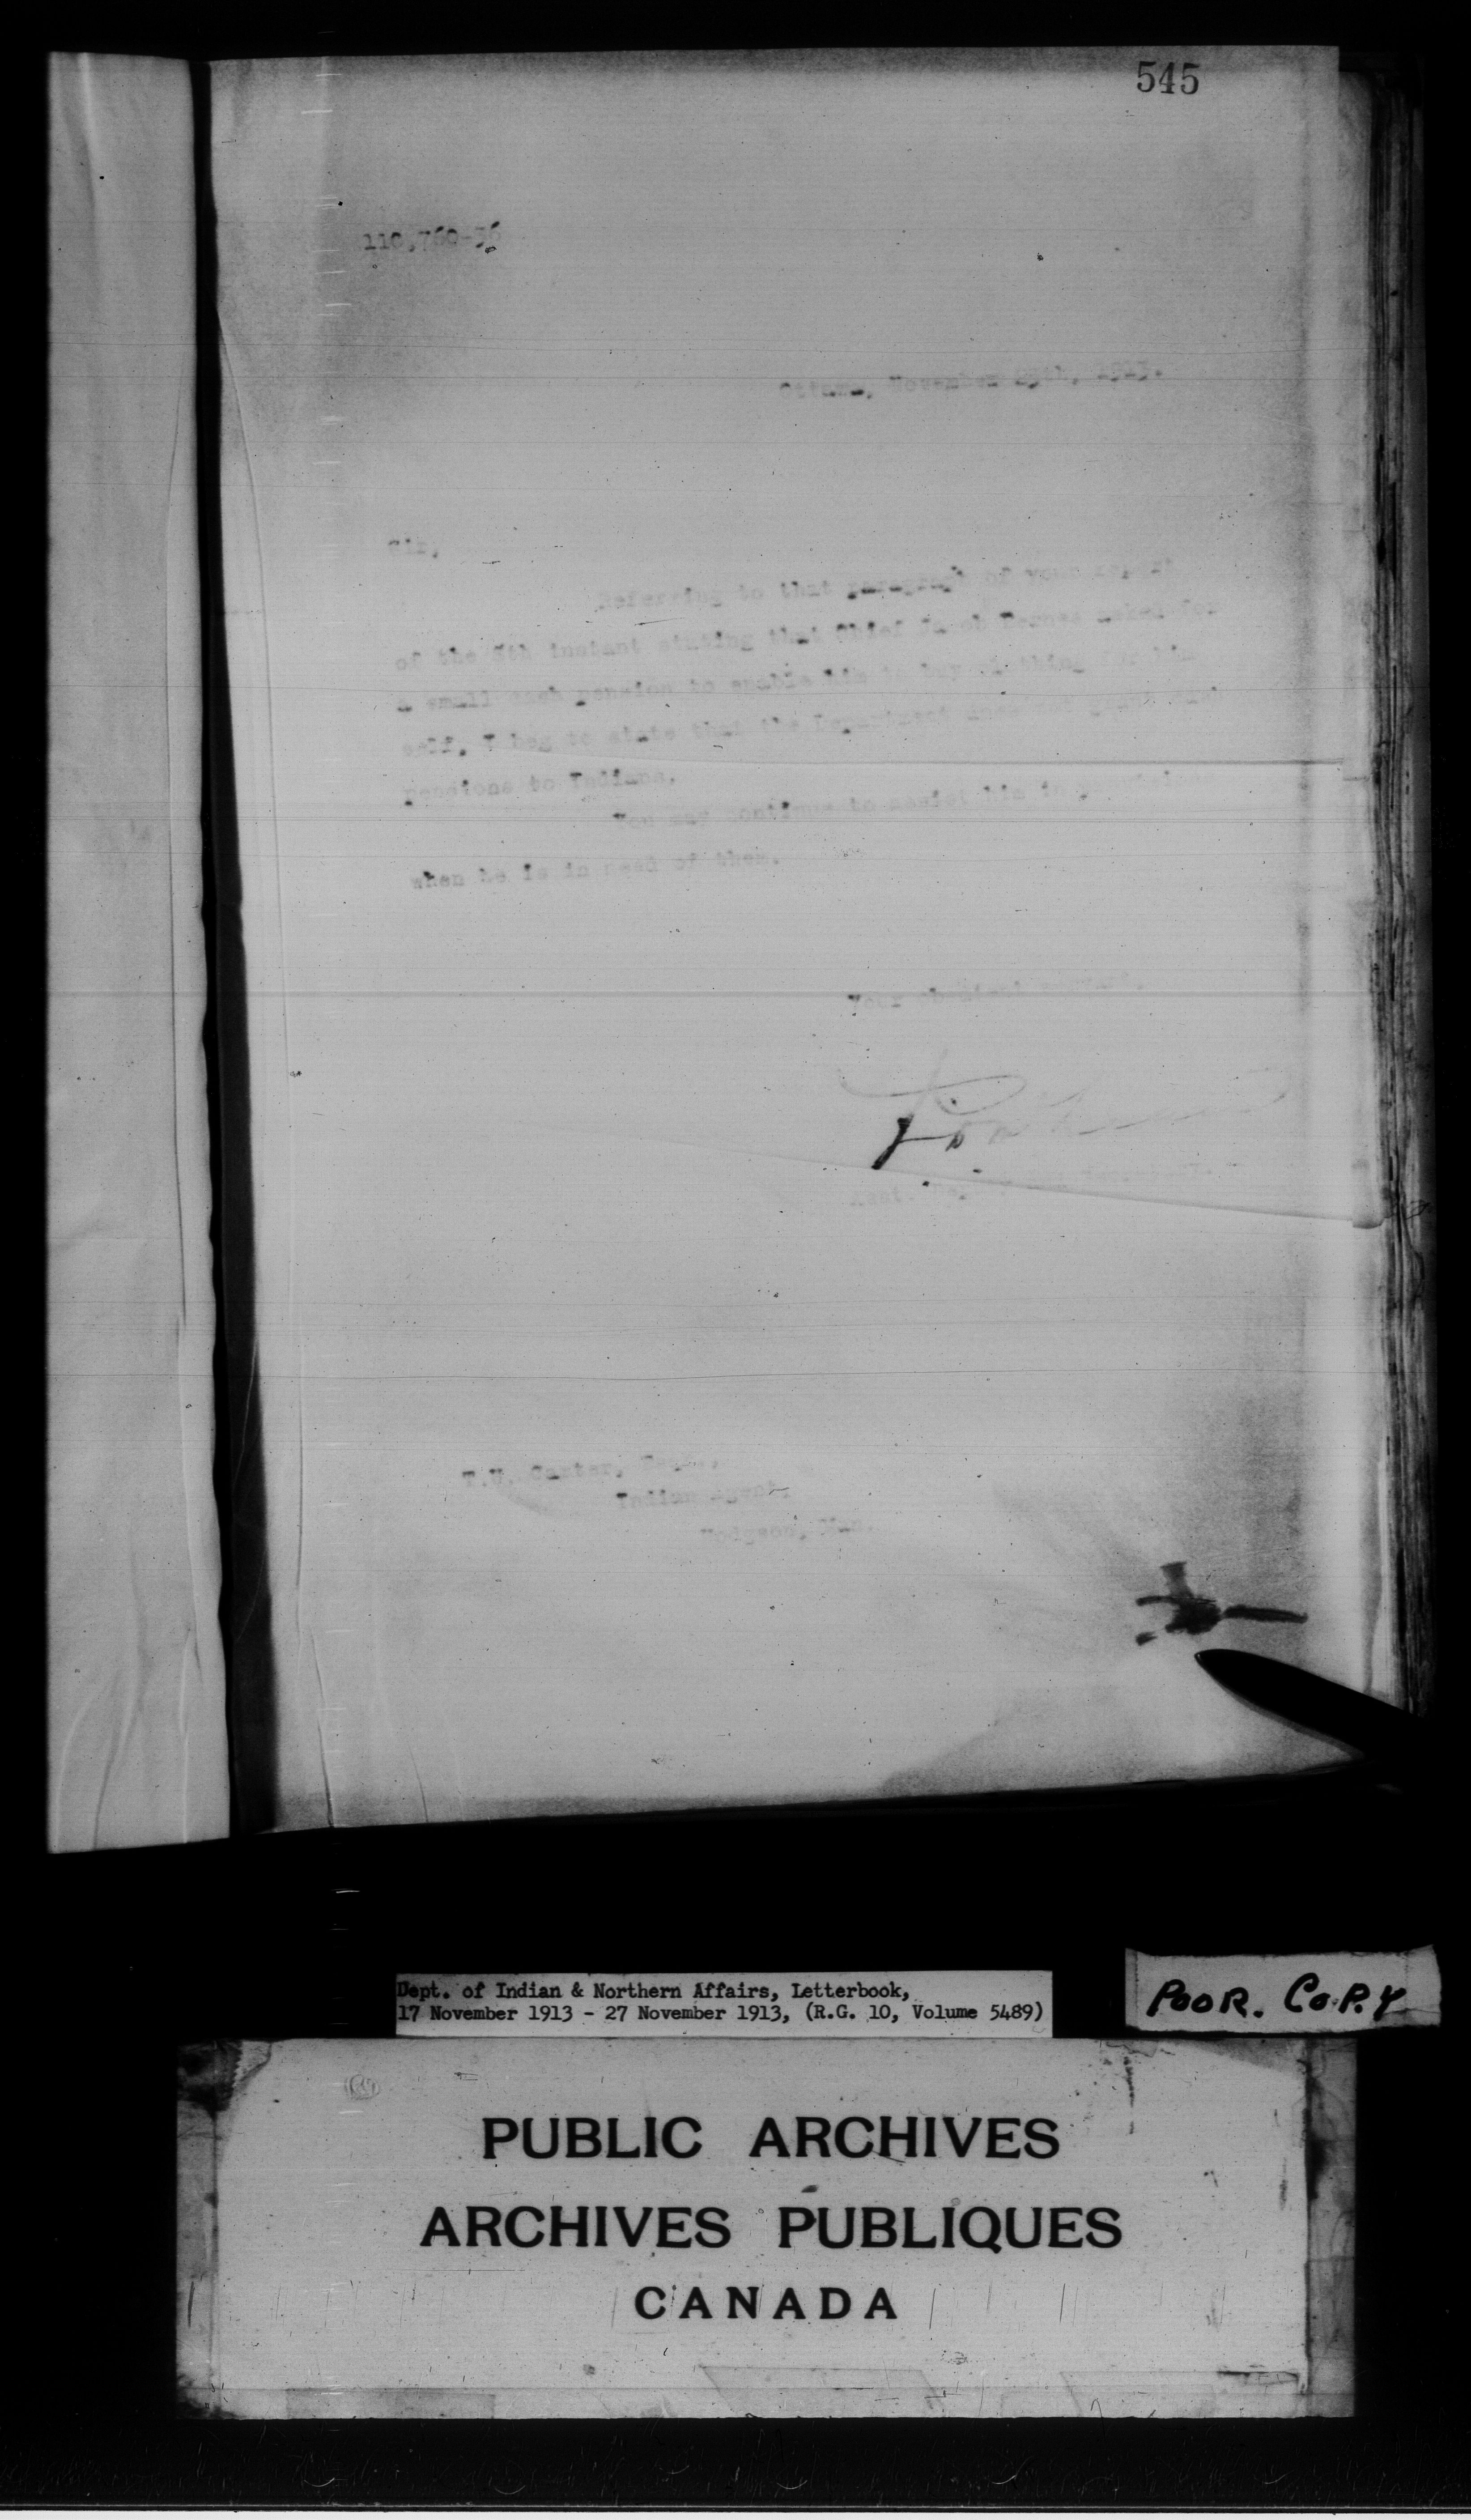 545
110,760-36
Ottawa, November 1913.
Sir,
Referring to that paragraph of your report
of the 8th instant stating that Chief Jacob asked for
a small cash pension to enable him to buy clothing for him
self, I beg to state that the Department does not grant
pensions to Indians.
You may continue to assist him in
when he is in need of them.
Your obedient servant,
Asst.
T.U. Carter, Esq.,
Indian Agent,
Hodgson, Man.
Dept. of Indian & Northern Affairs, Letterbook,
17 November 1913 - 27 November 1913, (R.G. 10, Volume 5489)
POOR. COPY
PUBLIC ARCHIVES
ARCHIVES PUBLIQUES
CANADA